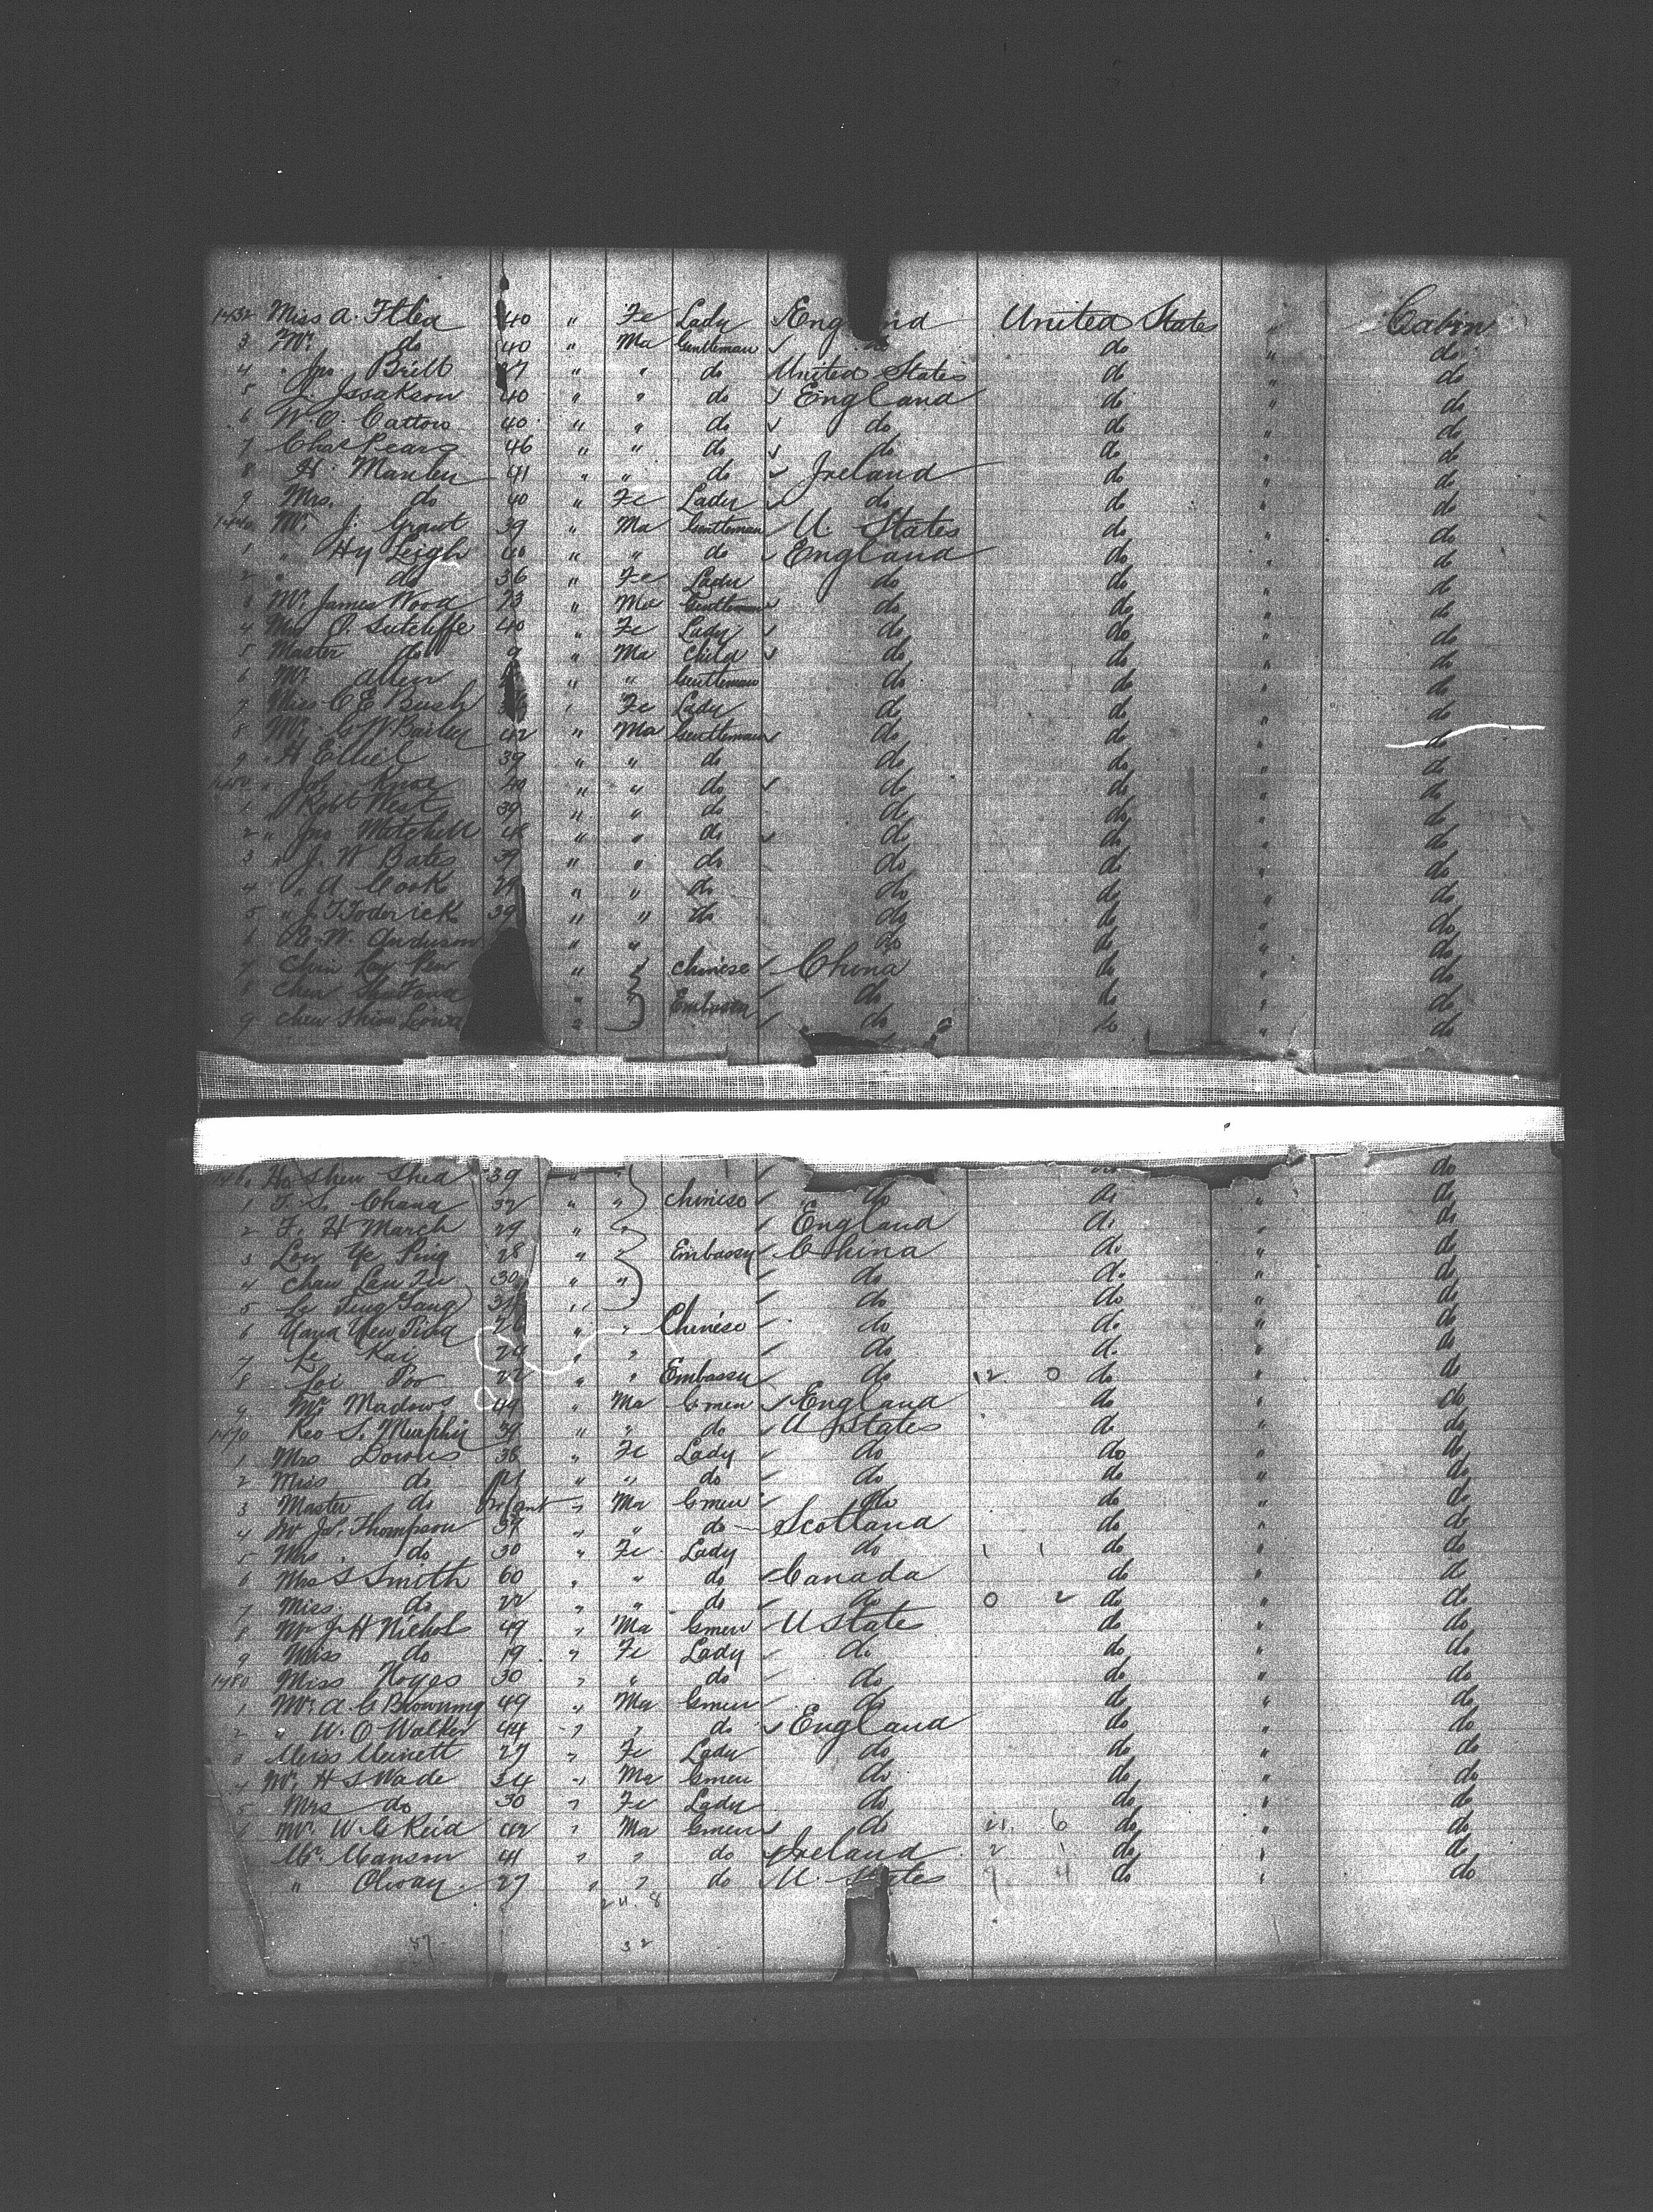 1432 Miss A. 40 " Fe Lady England United States " Cabin
3 Mr. do 40 " Ma Gentleman do do " do
4 " Jno. Britt 27 " " do United States do " do
5 J. Issakson 40 " " do England do " do
6 W. O. Catton 40 " " do do do " do
7 Chas Pears 46 " " do do do " do
8 H. Manley 41 " " do Ireland do " do
9 Mrs. do 40 " Fe Lady do do " do
1440 Mr. J. Grant 39 " Ma Gentleman U. States do " do
1 " Hy Leigh 40 " " do England do " do
2 " do 36 " Fe Lady do do " do
3 Mr. James Wood 23 " Ma Gentleman do do " do
4 Mrs Sutcliffe 40 " Fe Lady do do " do
5 Master do 9 " Ma Child do do " do
6 Mr. Allen " " Gentleman do do " do
7 Miss C E Bush " Fe Lady do do " do
8 Mr. G W Bailey 42 " Ma Gentleman do do " do
9 " H 39 " " do do do " do
1450 " Jos. Knox 40 " " do do do " do
1 " Robt West 39 " " do do do " do
2 " Jno Mitchell 48 " " do do do " do
3 " J. W Bates 39 " " do do do " do
4 " A Cook 29 " " do do do " do
5 " J. 39 " " do do do " do
6 W. Anderson " " do do " do
7 Chin Lan Pen " " Chinese China do " do
8 Chin " " do do " do
9 Chew " Embassy do do " do
Ho Shen Shea 39 " " do do
1 T. S. Chang 32 " " Chinese do do " do
2 F. H March 29 " " England do " do
3 Low Ye Ping 28 " " Embassy China do " do
4 Chaw Lau Zu 30 " " do do " do
5 Le Ting Tang " do do " do
6 Yang Yew Ting 26 " " Chinese do do " do
7 Le Kai 24 " " do do " do
8 Loi Poo 22 " " Embassy do 12 0 do " do
9 Mr. Madows 49 " Ma Gmen England do " do
1470 Reo S. Murphy 39 " " do U States do " do
1 Mrs Downs 38 " Fe Lady do do " do
2 Miss do " " do do do " do
3 Master do Infant " Ma Gmen do do " do
4 Mr Js. Thompson 37 " " do Scotland do " do
5 Mrs. do 30 " Fe Lady do 1 1 do " do
6 Mrs S Smith 60 " " do Canada do " do
7 Miss. do 22 " " do do 0 2 do " do
8 Mr J H Nichol 49 " Ma Gmen U States do " do
9 Miss do 19 " Fe Lady do do " do
1480 Miss Noyes 30 " " do do do " do
1 Mr. A. G Browning 49 " Ma Gmen do do " do
2 " W. O Walker 44 " " do England do " do
3 Miss 27 " Fe Lady do do " do
4 Mr. H S Wade 34 " Ma Gmen do do " do
5 Mrs do 30 " Fe Lady do do " do
6 Mr. W. G Reid 42 " Ma Gmen do 21. 6 do " do
Mr. Manson 41 " " do Ireland 2 1 do " do
" Olway 27 " " do U. States 9 4 do " do
24. 8
57 32